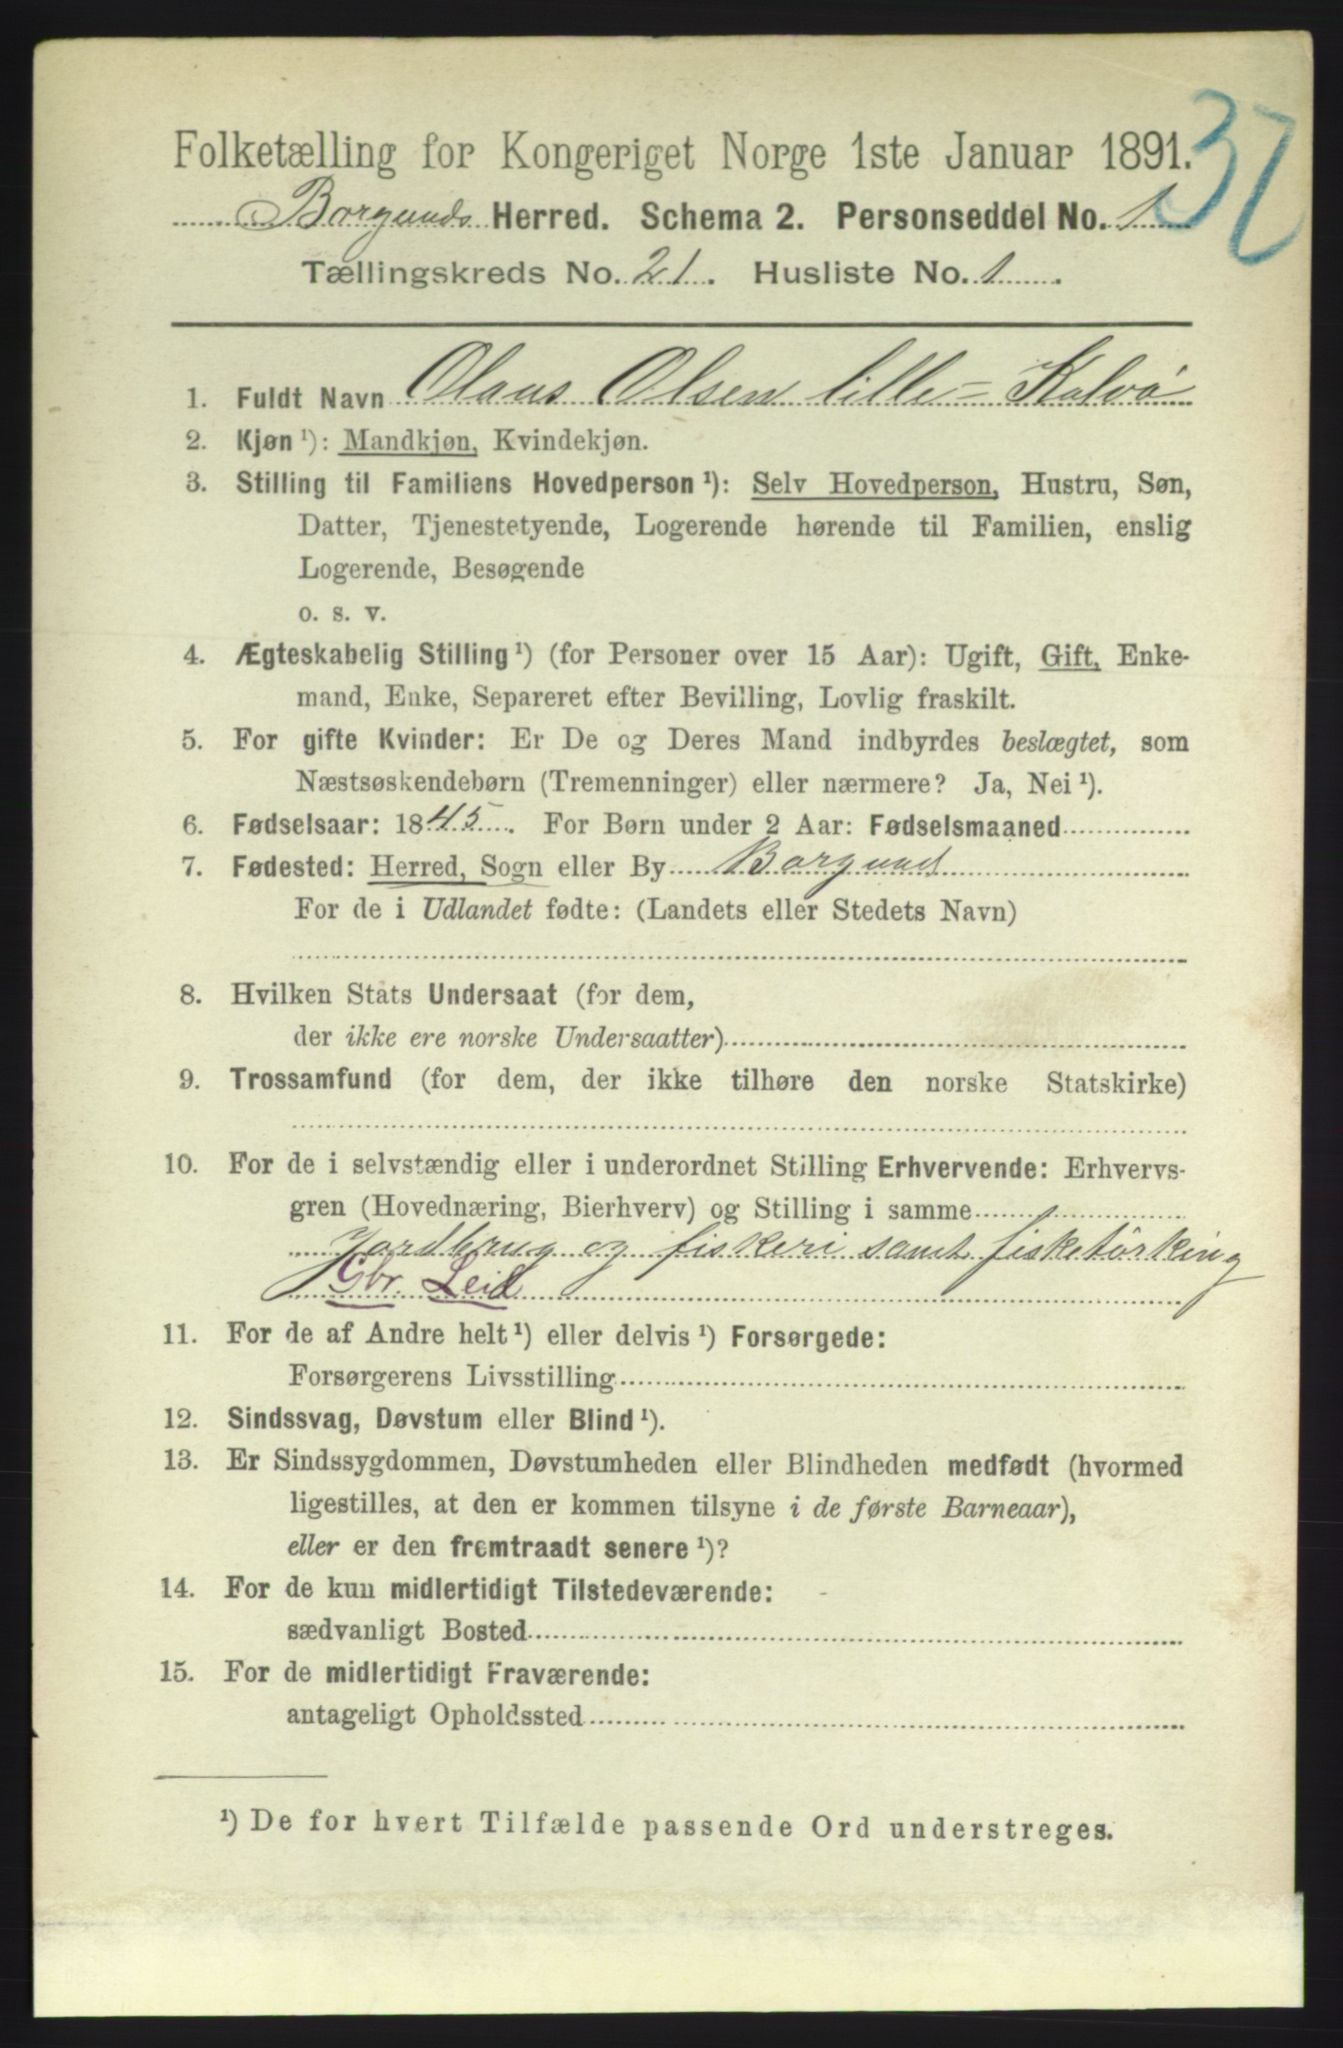 Folketælling for Kongeriget Norge 1ste Januar 1891.
32
Borgunds Herred. Schema 2. Personseddel No. 1
Tællingskreds No. 21. Husliste No. 1.
1. Fuldt Navn Olaus Olsen lille-Kalvø
2. Kjøn ¹): Mandkjøn, Kvindekjøn.
3. Stilling til Familiens Hovedperson ¹): Selv Hovedperson, Hustru, Søn,
Datter, Tjenestetyende, Logerende hørende til Familien, enslig
Logerende, Besøgende
o. s. v.
4. Ægteskabelig Stilling ¹) (for Personer over 15 Aar): Ugift, Gift, Enke-
mand, Enke, Separeret efter Bevilling, Lovlig fraskilt.
5. For gifte Kvinder: Er De og Deres Mand indbyrdes beslægtet, som
Næstsøskendebørn (Tremenninger) eller nærmere? Ja, Nei ¹).
6. Fødselsaar: 1845. For Børn under 2 Aar: Fødselsmaaned
7. Fødested: Herred, Sogn eller By Borgund
For de i Udlandet fødte: (Landets eller Stedets Navn)
8. Hvilken Stats Undersaat (for dem,
der ikke ere norske Undersaatter)
9. Trossamfund (for dem, der ikke tilhøre den norske Statskirke)
10. For de i selvstændig eller i underordnet Stilling Erhvervende: Erhvervs-
gren (Hovednæring, Bierhverv) og Stilling i samme
Jordbrug og fiskeri samt fisketørking
Gbr. Leil
11. For de af Andre helt ¹) eller delvis ¹) Forsørgede:
Forsørgerens Livsstilling
12. Sindssvag, Døvstum eller Blind ¹).
13. Er Sindssygdommen, Døvstumheden eller Blindheden medfødt (hvormed
ligestilles, at den er kommen tilsyne i de første Barneaar),
eller er den fremtraadt senere ¹)?
14. For de kun midlertidigt Tilstedeværende:
sædvanligt Bosted
15. For de midlertidigt Fraværende:
antageligt Opholdssted
¹) De for hvert Tilfælde passende Ord understreges.